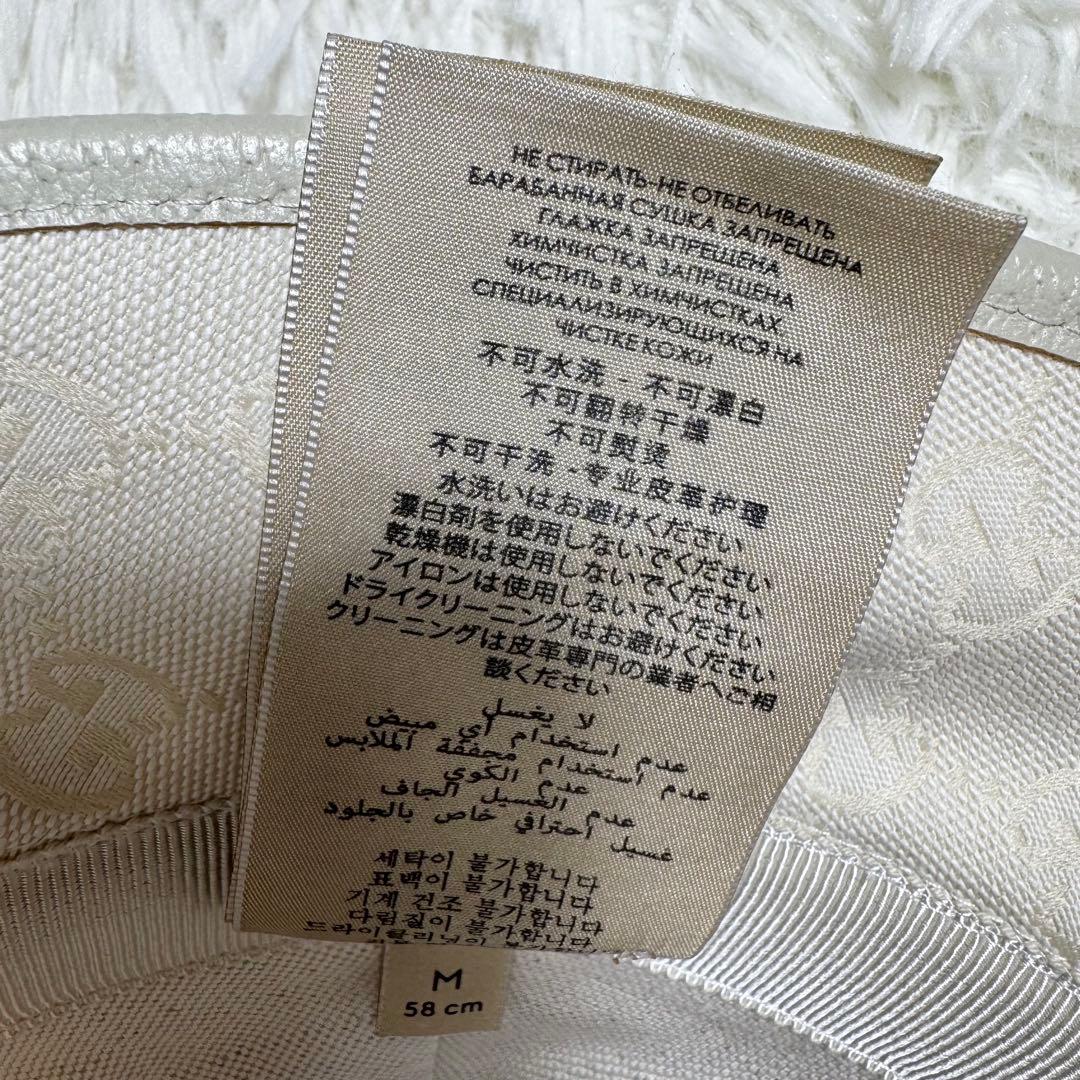 НЕ СТИРАТЬ-НЕ ОТБЕЛИВАТЬ
БАРАБАННАЯ СУШКА ЗАПРЕЩЕНА
ГЛАЖКА ЗАПРЕЩЕНА
ХИМЧИСТКА ЗАПРЕЩЕНА
ЧИСТИТЬ В ХИМЧИСТКАХ,
СПЕЦИАЛИЗИРУЮЩИХСЯ НА
ЧИСТКЕ КОЖИ
不可水洗 - 不可漂白
不可翻转干燥
不可熨烫
不可干洗 - 专业皮革护理
水洗いはお避けください
漂白剤を使用しないでください
乾燥機は使用しないでください
アイロンは使用しないでください
ドライクリーニングはお避けください
クリーニングは皮革専門の業者へご相
談ください
لا يغسل
عدم استخدام أي مبيض
عدم استخدام مجففة الملابس
عدم الكوي
عدم الغسيل الجاف
غسيل احترافي خاص بالجلود
세탁이 불가합니다
표백이 불가합니다
기계 건조 불가합니다
다림질이 불가합니다
드라이클리닝이 불가합니다
M
58 cm